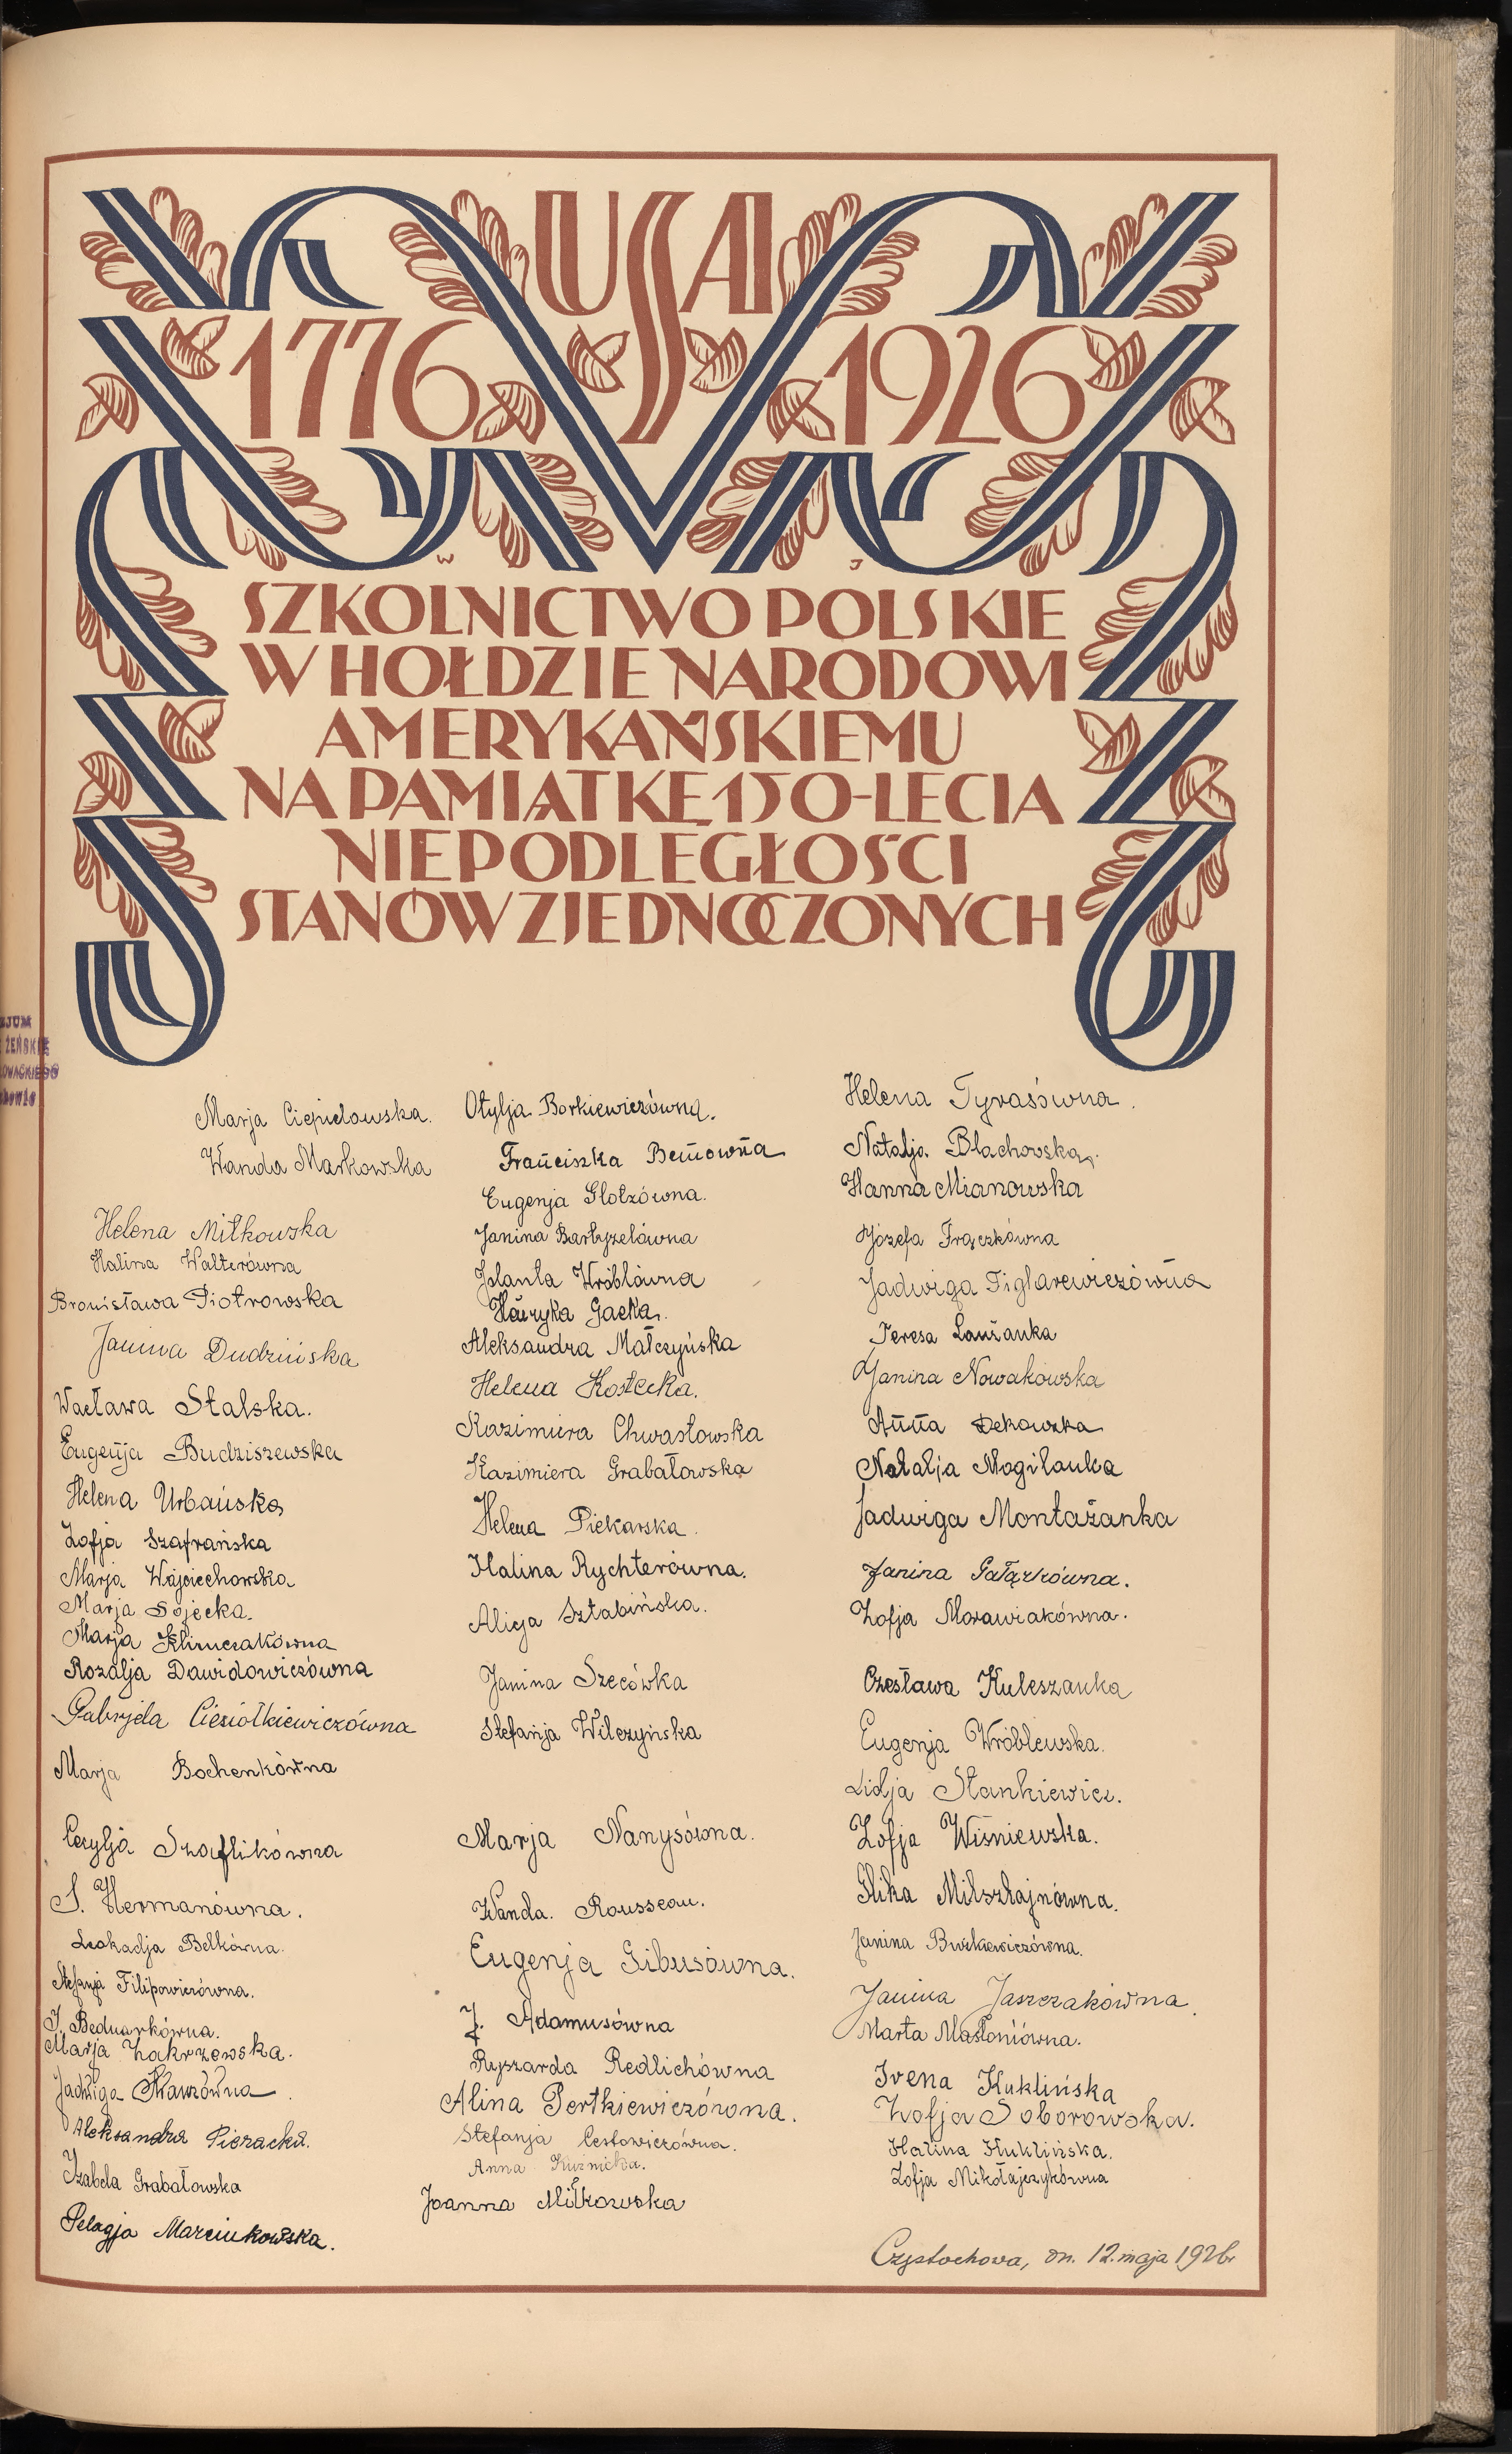 USA
1776 1926
W J
SZKOLNICTWO POLSKIE
W HOŁDZIE NARODOWI
AMERYKAŃSKIEMU
NA PAMIĄTKĘ 150-LECIA
NIEPODLEGŁOŚCI
STANÓW ZJEDNOCZONYCH
ŻEŃSKIE
Marja Ciepielowska.
Wanda Markowska
Helena Miłkowska
Halina Walterówna
Bronisława Piotrowska
Janina Dudzińska
Wacława Stalska.
Eugenja Budziszewska
Helena Urbańska
Zofja Szafrańska
Marja Wojciechowska
Marja Sojecka.
Marja Klimczakówna
Rozalja Dawidowiczówna
Gabryela Ciesiołkiewiczówna
Marja Bochenkówna
Cecylja Szaflikówna
S. Hermanówna.
Leokadja Belkówna.
Stefanja Filipowiczówna.
J. Bednarkówna.
Marja Zakrzewska.
Jadwiga
Aleksandra Pieracka.
Izabela Grabałowska
Pelagja Marcinkowska.
Otylja Borkiewiczówna.
Franciszka Bemówna
Eugenja Glotzówna.
Janina Bartyzelówna
Jolanta Wróblówna
Henryka Gacka.
Aleksandra Małczyńska
Helena Kostecka.
Kazimiera Chwastowska
Kazimiera Grabałowska
Helena Piekarska.
Halina Rychterówna.
Alicja Sztabińska.
Janina Szecówka
Stefanja Wilczyńska
Marja Nanysówna.
Wanda. Rousseau.
Eugenja Gibusówna.
J. Adamusówna
Ryszarda Redlichówna
Alina Pertkiewiczówna.
Stefanja Cestowiczówna.
Anna Kuźnicka.
Joanna Miłkowska
Helena Tyrasówna.
Natalja Blachowska.
Hanna Mianowska
Józefa Frączkówna
Jadwiga Figlarewiczówna
Teresa Lauzanka
Janina Nowakowska
Anna Dekowska
Natalja Mogilanka
Jadwiga Montażanka
Janina Gałązkówna.
Zofja Morawiakówna.
Czesława Kuleszanka
Eugenja Wróblewska.
Lidja Stankiewicz.
Zofja Wiśniewska.
Glika Milsztajnówna.
Janina Burkiewiczówna.
Janina Jaszczakówna.
Marta Masłoniówna.
Irena Kuklińska
Zofja Soborowska.
Halina Kuklińska.
Zofja Mikołajczykówna
Częstochowa, dn. 12. maja 1926r